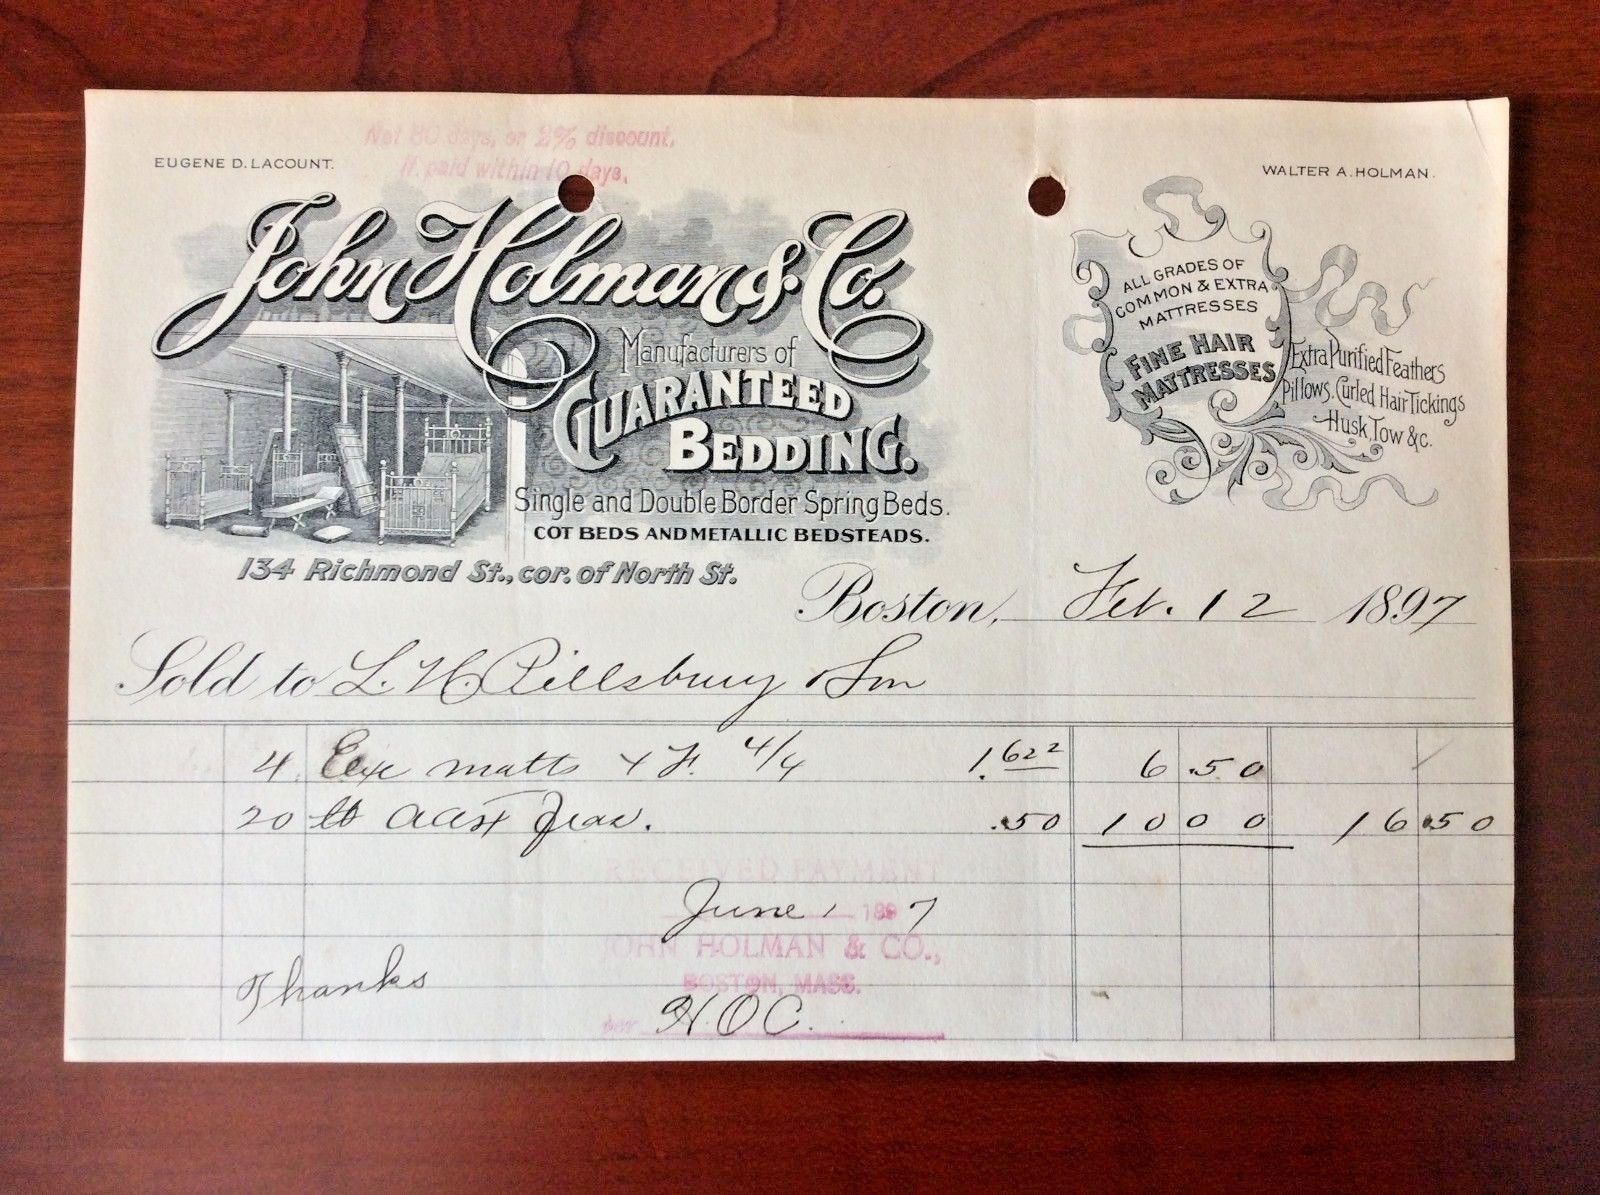 Net 30 days, or 2% discount,
If paid within 10 days.
EUGENE D. LACOUNT.
WALTER A. HOLMAN.
John Holman & Co.
Manufacturers of
GUARANTEED
BEDDING.
Single and Double Border Spring Beds.
COT BEDS AND METALLIC BEDSTEADS.
134 Richmond St., cor. of North St.
ALL GRADES OF
COMMON & EXTRA
MATTRESSES
FINE HAIR
MATTRESSES
Extra Purified Feathers
Pillows, Curled Hair Tickings
Husk, Tow &c.
Boston, Feb. 12 1897
Sold to L. H. Pillsbury & Son
4 matts 4/4 1.62 2 6.50
20 lb .50 10 00 16.50
RECEIVED PAYMENT
June 1 1897
JOHN HOLMAN & CO.,
BOSTON, MASS.
Thanks
per H.O.C.